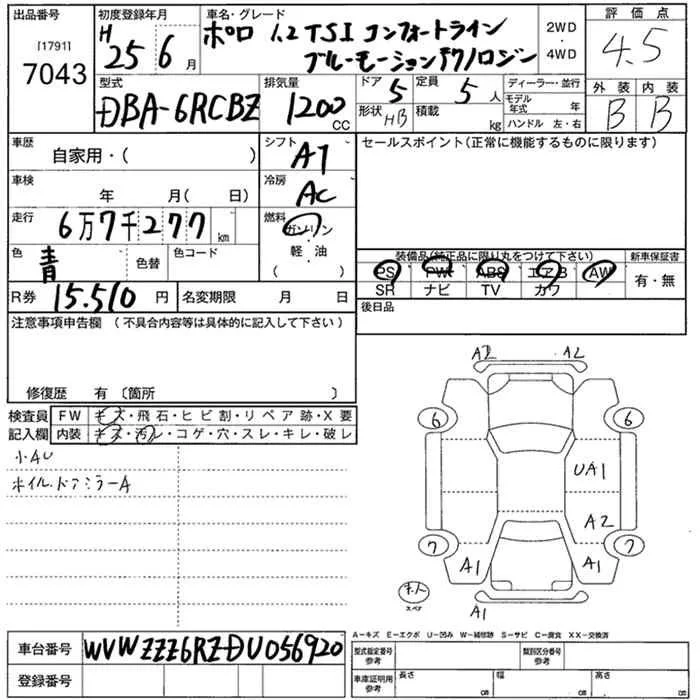 出品番号
[1791]
7043
初度登録年月
H 25年 6月
車名・グレード
ポロ 1.2 TSI コンフォートライン
ブルーモーションテクノロジー
2WD
・
4WD
評価点
4.5
外装 内装
B B
型式
DBA-6RCBZ
排気量
1200 CC
ドア 5
形状 HB
定員 5人
積載 kg
ディーラー・並行
モデル年式 年
ハンドル 左・右
車歴
自家用・( )
シフト
AT
セールスポイント(正常に機能するものに限ります)
車検
年 月( 日)
冷房
AC
走行
6万7千277km
燃料
ガソリン
・
軽油
( )
色
青
色替
色コード
装備品(純正品に限り丸をつけて下さい)
PS PW ABS エアB AW
SR ナビ TV カワ
新車保証書
有・無
R券 15.510円
名変期限 月 日
後日品
注意事項申告欄 (不具合内容等は具体的に記入して下さい)
修復歴 有 〔箇所 〕
検査員記入欄
FW キズ・飛石・ヒビ割・リペア跡・X要
内装 キズ・汚レ・コゲ・穴・スレ・キレ・破レ
小AU
ホイル、ドアミラーA
A2 A2
6 6
UA1
A2
7 7
A1 A1
A1
スペア
A-キズ E-エクボ U-凹み W-補修跡 S-サビ C-腐食 XX-交換済
車台番号 WVWZZZ6RZDU056920
登録番号
型式指定番号参考
類別区分番号参考
車庫証明用参考
長さ cm
幅 cm
高さ cm